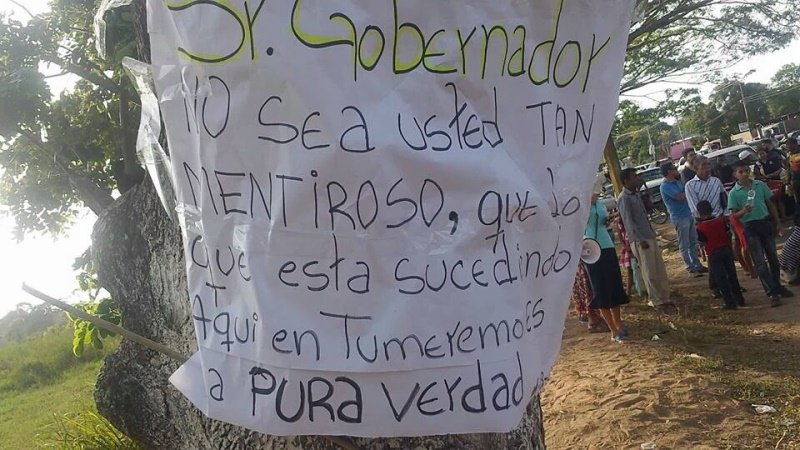 Sr. Gobernador
NO sea usted TAN
MENTIROSO, que lo
que esta sucedindo
Aqui en Tumeremoes
a PURA verdad